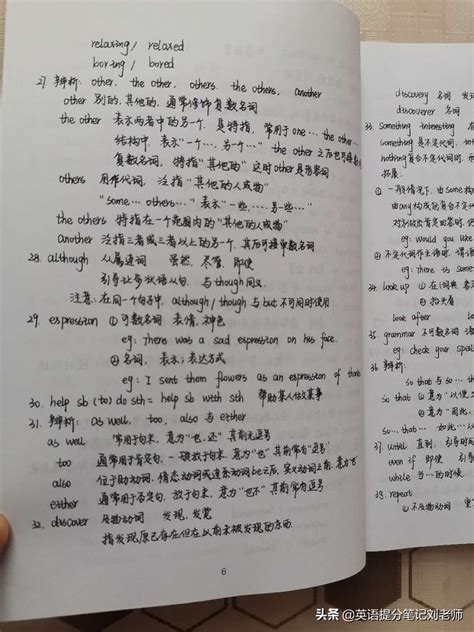 relaxing / relaxed
boring / bored
27. 辨析: other, the other, others, the others, another
other 别的, 其他的, 通常修饰复数名词
the other 表示两者中的另一个, 是特指, 常用于 one… the other…
结构中, 表示"一个…, 另一个…" the other 之后也可
复数名词, 特指"其他的" 这时 other 是形容词
others 用作代词, 泛指"其他的人或物"
"some… others…" 表示"一些, …, 另一些…"
the others 特指在一个范围内的"其他的人或物"
another 泛指三者或三者以上的另一个, 其后可接单数名词
28. although 从属连词 虽然, 尽管, 即使
引导让步状语从句, 与 though 同义
注意: 在同一个句子中, although / though 与 but 不可同时使用
29. expression ① 可数名词 表情, 神色
eg: There was a sad expression on his face.
② 名词, 表示; 表达方式
eg: I sent them flowers as an expression of thanks
30. help sb (to) do sth = help sb with sth 帮助某人做某事
31. 辨析: as well, too, also 与 either
as well 常用于句末, 意为"也, 还" 其前无逗号
too 通常用于肯定句, 一般放于句末, 意为"也" 其前常有逗号
also 位于助动词, 情态动词或连系动词be之后, 实义动词之前, 意为"也"
either 通常用于否定句, 放于句末, 意为"也不" 其前常有逗号
32. discover 及物动词 发现, 发觉
指发现原已存在但在以前未被发现的东西
6
discovery 名词 发
discoverer 名词
33. something interesting
something 是不定代词,
nothing 复合不定代词时,
拓展.
① 一般情况下, 由 some
由 any 构成的复合不定代
对别
eg: Would you like
② 不定代词作主语时, 谓语
eg: There is some
34. look up ① 在(词典
② 抬头看
look after
look
35. grammar 不可数名词 语
eg: check your spell
36. 辨析:
so that 与 so… th
so that ① 意为"以便
② 意为"因此,
so… that… 如此…以
37. until 直到, 引导时
even if 即使 引导
while 当…的时候,
38. repeat
① 不及物动词
头条 @英语提分笔记刘老师